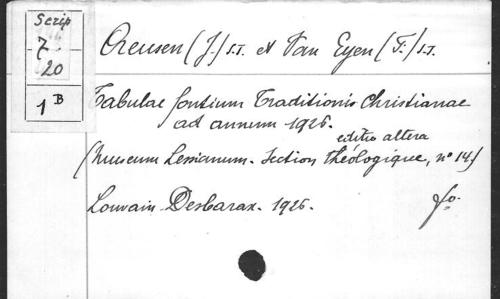 Scrip
7.
20
1 B
Creusen (J.) S.T. et Van Eyen (F.) S.T.
Tabulae fontium Traditionis Christianae
ad annum 1926.
editio altera
(Museum Lessianum. Section théologique, n° 14.)
Louvain Desbarax. 1926.
fo.